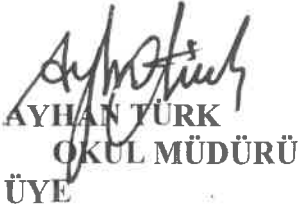 AYHAN TÜRK
OKUL MÜDÜRÜ
ÜYE